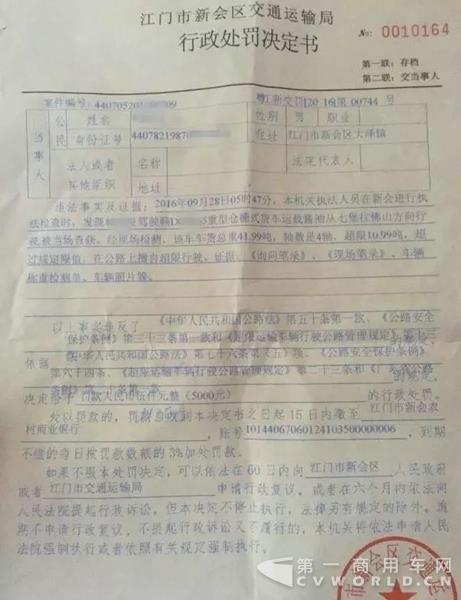 江门市新会区交通运输局
行政处罚决定书
№: 0010164
第一联：存档
第二联：交当事人
案件编号: 44070520 709
粤江新交罚[2016]第 00744 号
当事人
公民
姓名
性别 男 职业
身份证号 440782198707
住址 江门市新会区大泽镇
法人或者其他组织
名称
法定代表人
地址
违法事实及证据: 2016年09月28日05时47分，本机关执法人员在新会进行执
法检查时，发现 驾驶粤J 5重型仓栅式货车运载酱油从七堡拉佛山方向行
驶被当场查获。经现场检测，该车车货总重41.99吨，轴数是4轴，超限10.99吨，超
过规定限值，在公路上擅自超限行驶。证据：《询问笔录》、《现场笔录》、车辆
称重检测单、车辆照片等。
以上事实违反了《中华人民共和国公路法》第五十条第一款、《公路安全
保护条例》第三十三条第一款和《超限运输车辆行驶公路管理规定》第十三
依据《中华人民共和国公路法》第七十六条第（五）项、《公路安全保护条例》
第六十四条、《超限运输车辆行驶公路管理规定》第二十三条和《广东省公路
决定给予 罚款人民币伍仟元整（5000元） 的行政处罚。
处以罚款的，罚款当收到本决定书之日起 15 日内缴至 江门市新会农
村商业银行 ，账号 10144067060124103500000006 ，到期
不缴的每日按罚款数额的 3%加处罚款。
如果不服本处罚决定，可以依法在 60 日内向 江门市新会区 人民政府
或者 江门市交通运输局 申请行政复议，或者在六个月内依法向
人民法院提起行政诉讼，但本决定不停止执行，法律另有规定的除外。逾
期不申请行政复议、不提起行政诉讼又不履行的，本机关将依法申请人民
法院强制执行或者依照有关规定强制执行。
市新会区交通
第一商用车网
CVWORLD.CN